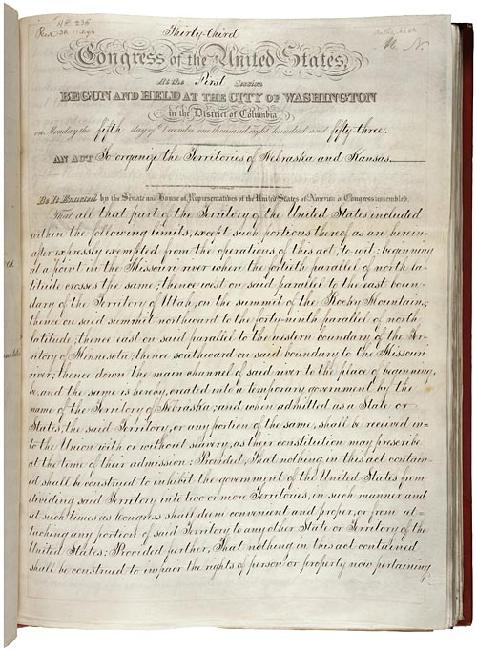 H.R. 236
Thirty-third
Congress of the United States;
At the First Session
BEGUN AND HELD AT THE CITY OF WASHINGTON
in the District of Columbia
on Monday the fifth day of December one thousand eight hundred and fifty-three.
AN ACT To organize the Territories of Nebraska and Kansas.
Be It Enacted by the Senate and House of Representatives of the United States of America in Congress assembled,
That all that part of the Territory of the United States included
within the following limits, except such portions thereof as are herein-
after expressly exempted from the operations of this act, to wit: beginning
at a point in the Missouri river where the fortieth parallel of north la-
titude crosses the same; thence west on said parallel to the east boun-
dary of the Territory of Utah, on the summit of the Rocky Mountains;
thence on said summit northward to the forty-ninth parallel of north
latitude; thence east on said parallel to the western boundary of the Ter-
ritory of Minnesota; thence southward on said boundary to the Missouri
river; thence down the main channel of said river to the place of beginning,
be, and the same is hereby, created into a temporary government by the
name of the Territory of Nebraska; and when admitted as a State or
States, the said Territory, or any portion of the same, shall be received in-
to the Union with or without slavery, as their constitution may prescribe
at the time of their admission: Provided, That nothing in this act contain-
ed shall be construed to inhibit the government of the United States from
dividing said Territory into two or more Territories, in such manner and
at such times as Congress shall deem convenient and proper, or from at-
taching any portion of said Territory to any other State or Territory of the
United States: Provided further, That nothing in this act contained
shall be construed to impair the rights of person or property now pertaining